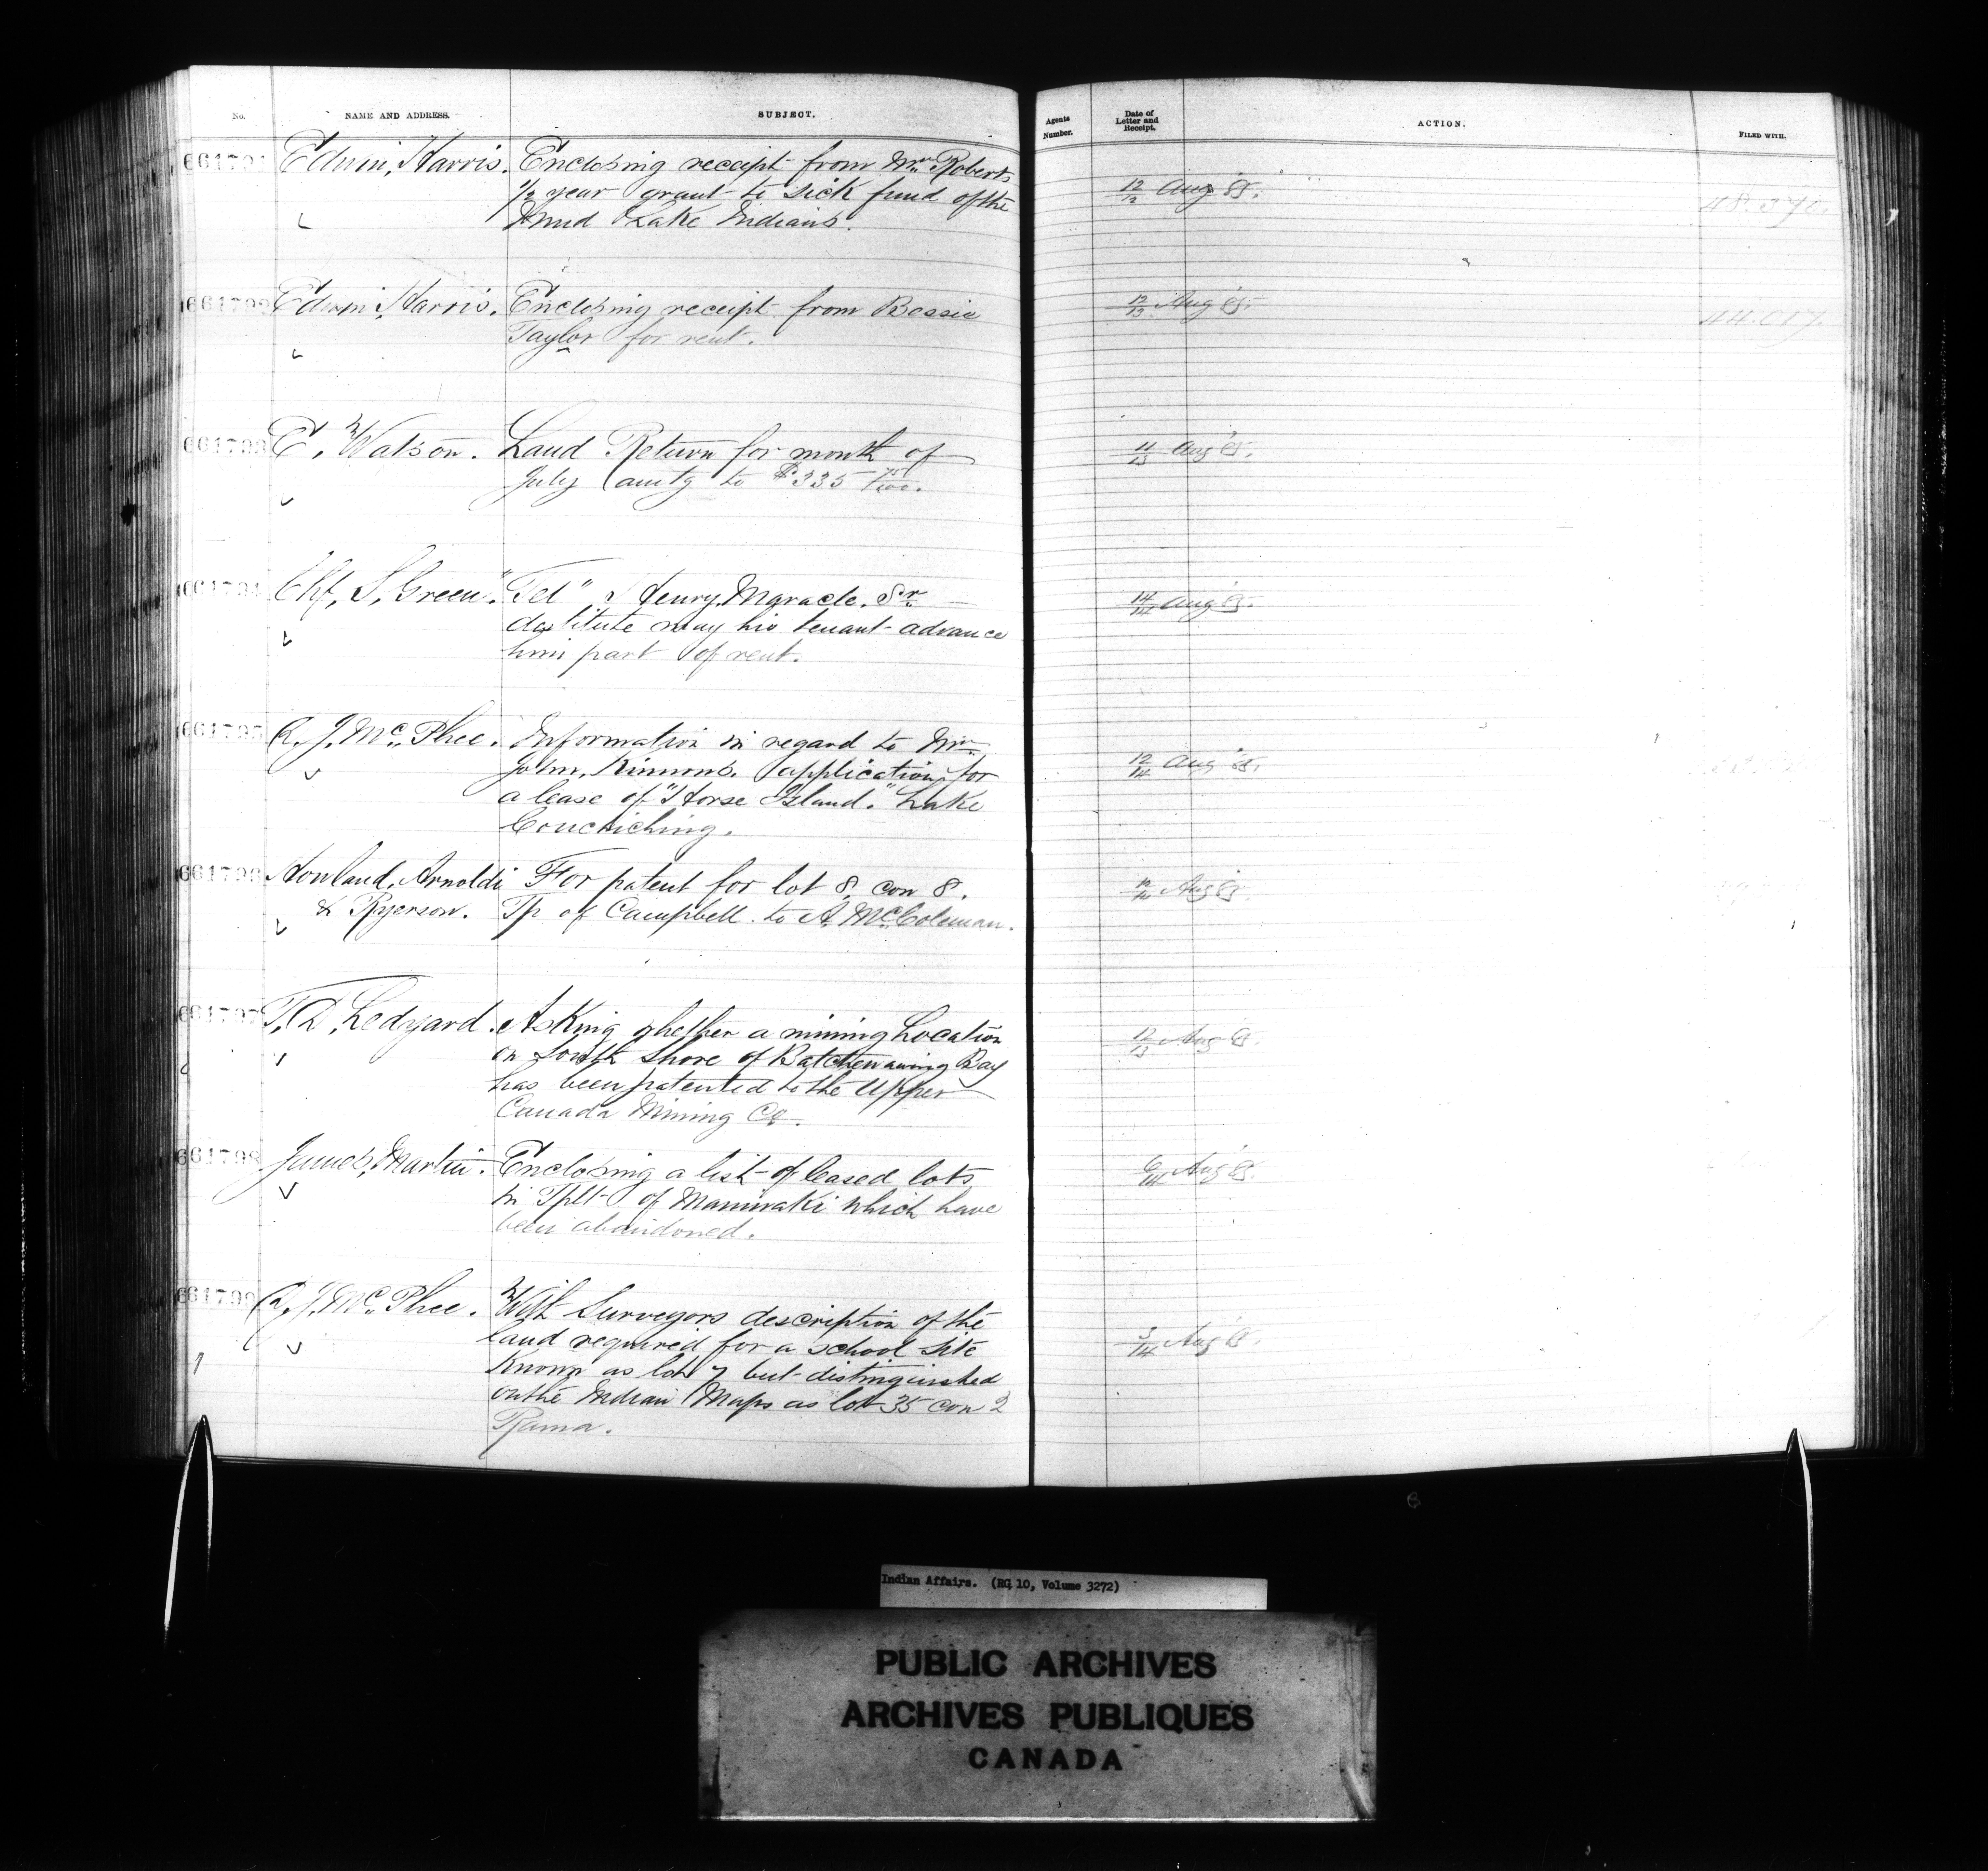 No. NAME AND ADDRESS. SUBJECT. Agents Number. Date of Letter and Receipt. ACTION. FILED WITH.
661791 Edwin, Harris. Enclosing receipt from Mrs Roberts
1/2 year grant to sick fund of the
Mud Lake Indians.
12/12 Aug 85.
661792 Edwin, Harris. Enclosing receipt from Bessie
Taylor for rent.
12/13 Aug 85.
44.017.
661793 E, Watson. Land Return for month of
July amtg to $335
11/13 Aug 85.
661794 Chf, S, Green. "Tel" Henry, Maracle. Sr
destitute may his tenant advance
him part of rent.
14/14 Aug 85.
661795 A. J. Mc. Phee. Information in regard to Mr
John, Kinnons. application for
a lease of "Horse Island." Lake
Couchiching.
12/14 Aug 85.
661796 Howland, Arnoldi For patent for lot 8, con 8.
& Ryerson. Tp of Campbell. to A, McColeman.
Aug 85.
661797 T, D, Ledyard. Asking whether a mining Location
on South Shore of Batchewaning Bay
has been patented to the Upper
Canada Mining Co.
12/13 Aug 85.
661798 James, Martin. Enclosing a list of leased lots
in Tpll of Maniwaki which have
been abandoned.
6/14 Aug 85.
661799 A, J, Mc. Phee. With Surveyors description of the
land required for a school site
Known as lot 7 but distinguished
on the Indian Maps as lot 35 con 2
Rama.
3/14 Aug 85.
Indian Affairs. (RG 10, Volume 3272)
PUBLIC ARCHIVES
ARCHIVES PUBLIQUES
CANADA